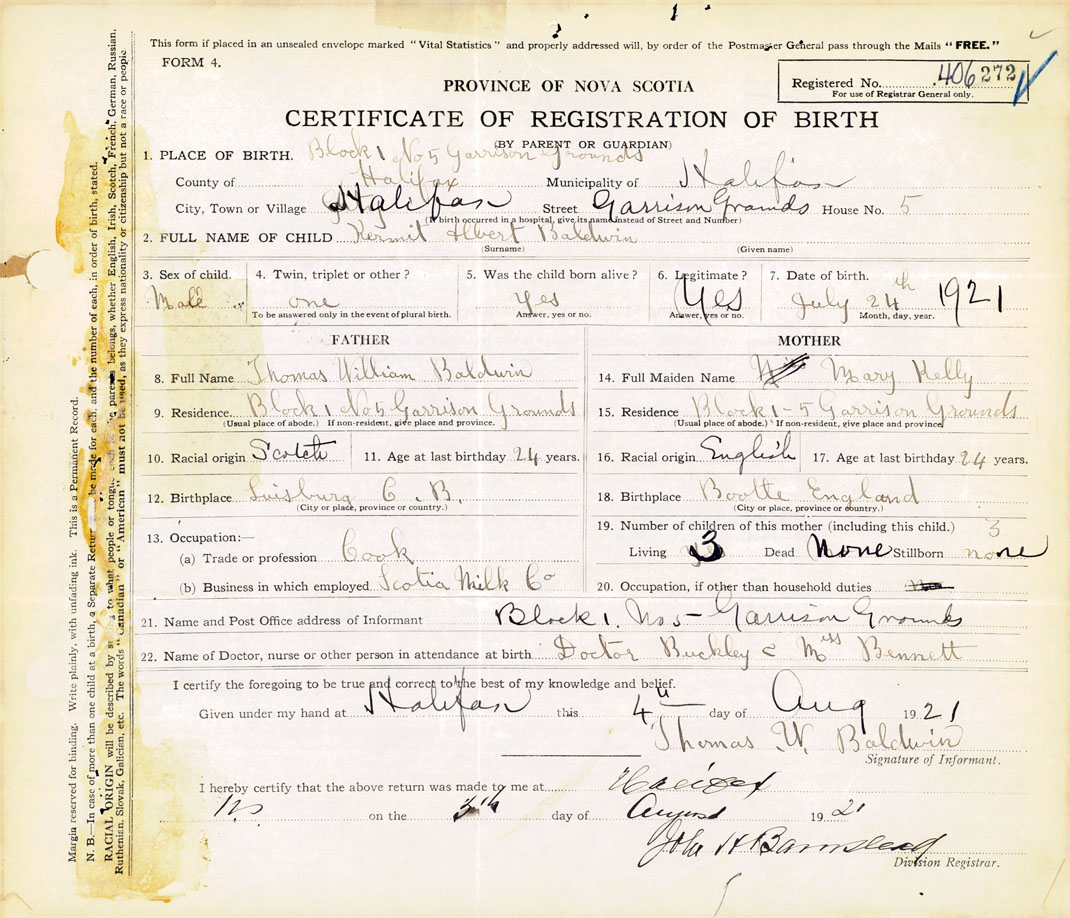 This form if placed in an unsealed envelope marked "Vital Statistics" and properly addressed will, by order of the Postmaster General pass through the Mails "FREE."
FORM 4.
Registered No. 406272
For use of Registrar General only.
PROVINCE OF NOVA SCOTIA
CERTIFICATE OF REGISTRATION OF BIRTH
(BY PARENT OR GUARDIAN)
1. PLACE OF BIRTH. Block 1 No 5 Garrison Grounds
County of Halifax Municipality of Halifax
City, Town or Village Halifax Street Garrison Grounds House No. 5
(If birth occurred in a hospital, give its name instead of Street and Number)
2. FULL NAME OF CHILD Kermit Albert Baldwin
(Surname) (Given name)
3. Sex of child. 4. Twin, triplet or other? 5. Was the child born alive? 6. Legitimate? 7. Date of birth.
Male one yes Yes July 24th 1921
To be answered only in the event of plural birth. Answer, yes or no. Answer, yes or no. Month, day, year.
FATHER MOTHER
8. Full Name Thomas William Baldwin 14. Full Maiden Name Mary Kelly
9. Residence Block 1 No 5 Garrison Grounds 15. Residence Block 1-5 Garrison Grounds
(Usual place of abode.) If non-resident, give place and province. (Usual place of abode.) If non-resident, give place and province.
10. Racial origin Scotch 11. Age at last birthday 24 years. 16. Racial origin English 17. Age at last birthday 24 years.
12. Birthplace Luisburg C.B. 18. Birthplace Bootte England
(City or place, province or country.) (City or place, province or country.)
19. Number of children of this mother (including this child.) 3
13. Occupation:—
(a) Trade or profession Cook Living 3 Dead None Stillborn none
(b) Business in which employed Scotia Milk Co 20. Occupation, if other than household duties
21. Name and Post Office address of Informant Block 1. No 5- Garrison Grounds
22. Name of Doctor, nurse or other person in attendance at birth Doctor Buckley & Miss Bennett
I certify the foregoing to be true and correct to the best of my knowledge and belief.
Given under my hand at Halifax this 4th day of Aug 1921
Thomas W. Baldwin
Signature of Informant.
I hereby certify that the above return was made to me at Halifax
NS on the 5th day of August 1921
John H Barnstead
Division Registrar.
Margin reserved for binding. Write plainly, with unfading ink. This is a Permanent Record.
N. B.—In case of more than one child at a birth, a Separate Return be made for each, and the number of each, in order of birth, stated.
RACIAL ORIGIN will be described by to what people or tongue parents belongs, whether English, Irish, Scotch, French, German, Russian,
Ruthenian, Slovak, Galician, etc. The words "Canadian" or "American" must not be used, as they express nationality or citizenship but not a race or people.